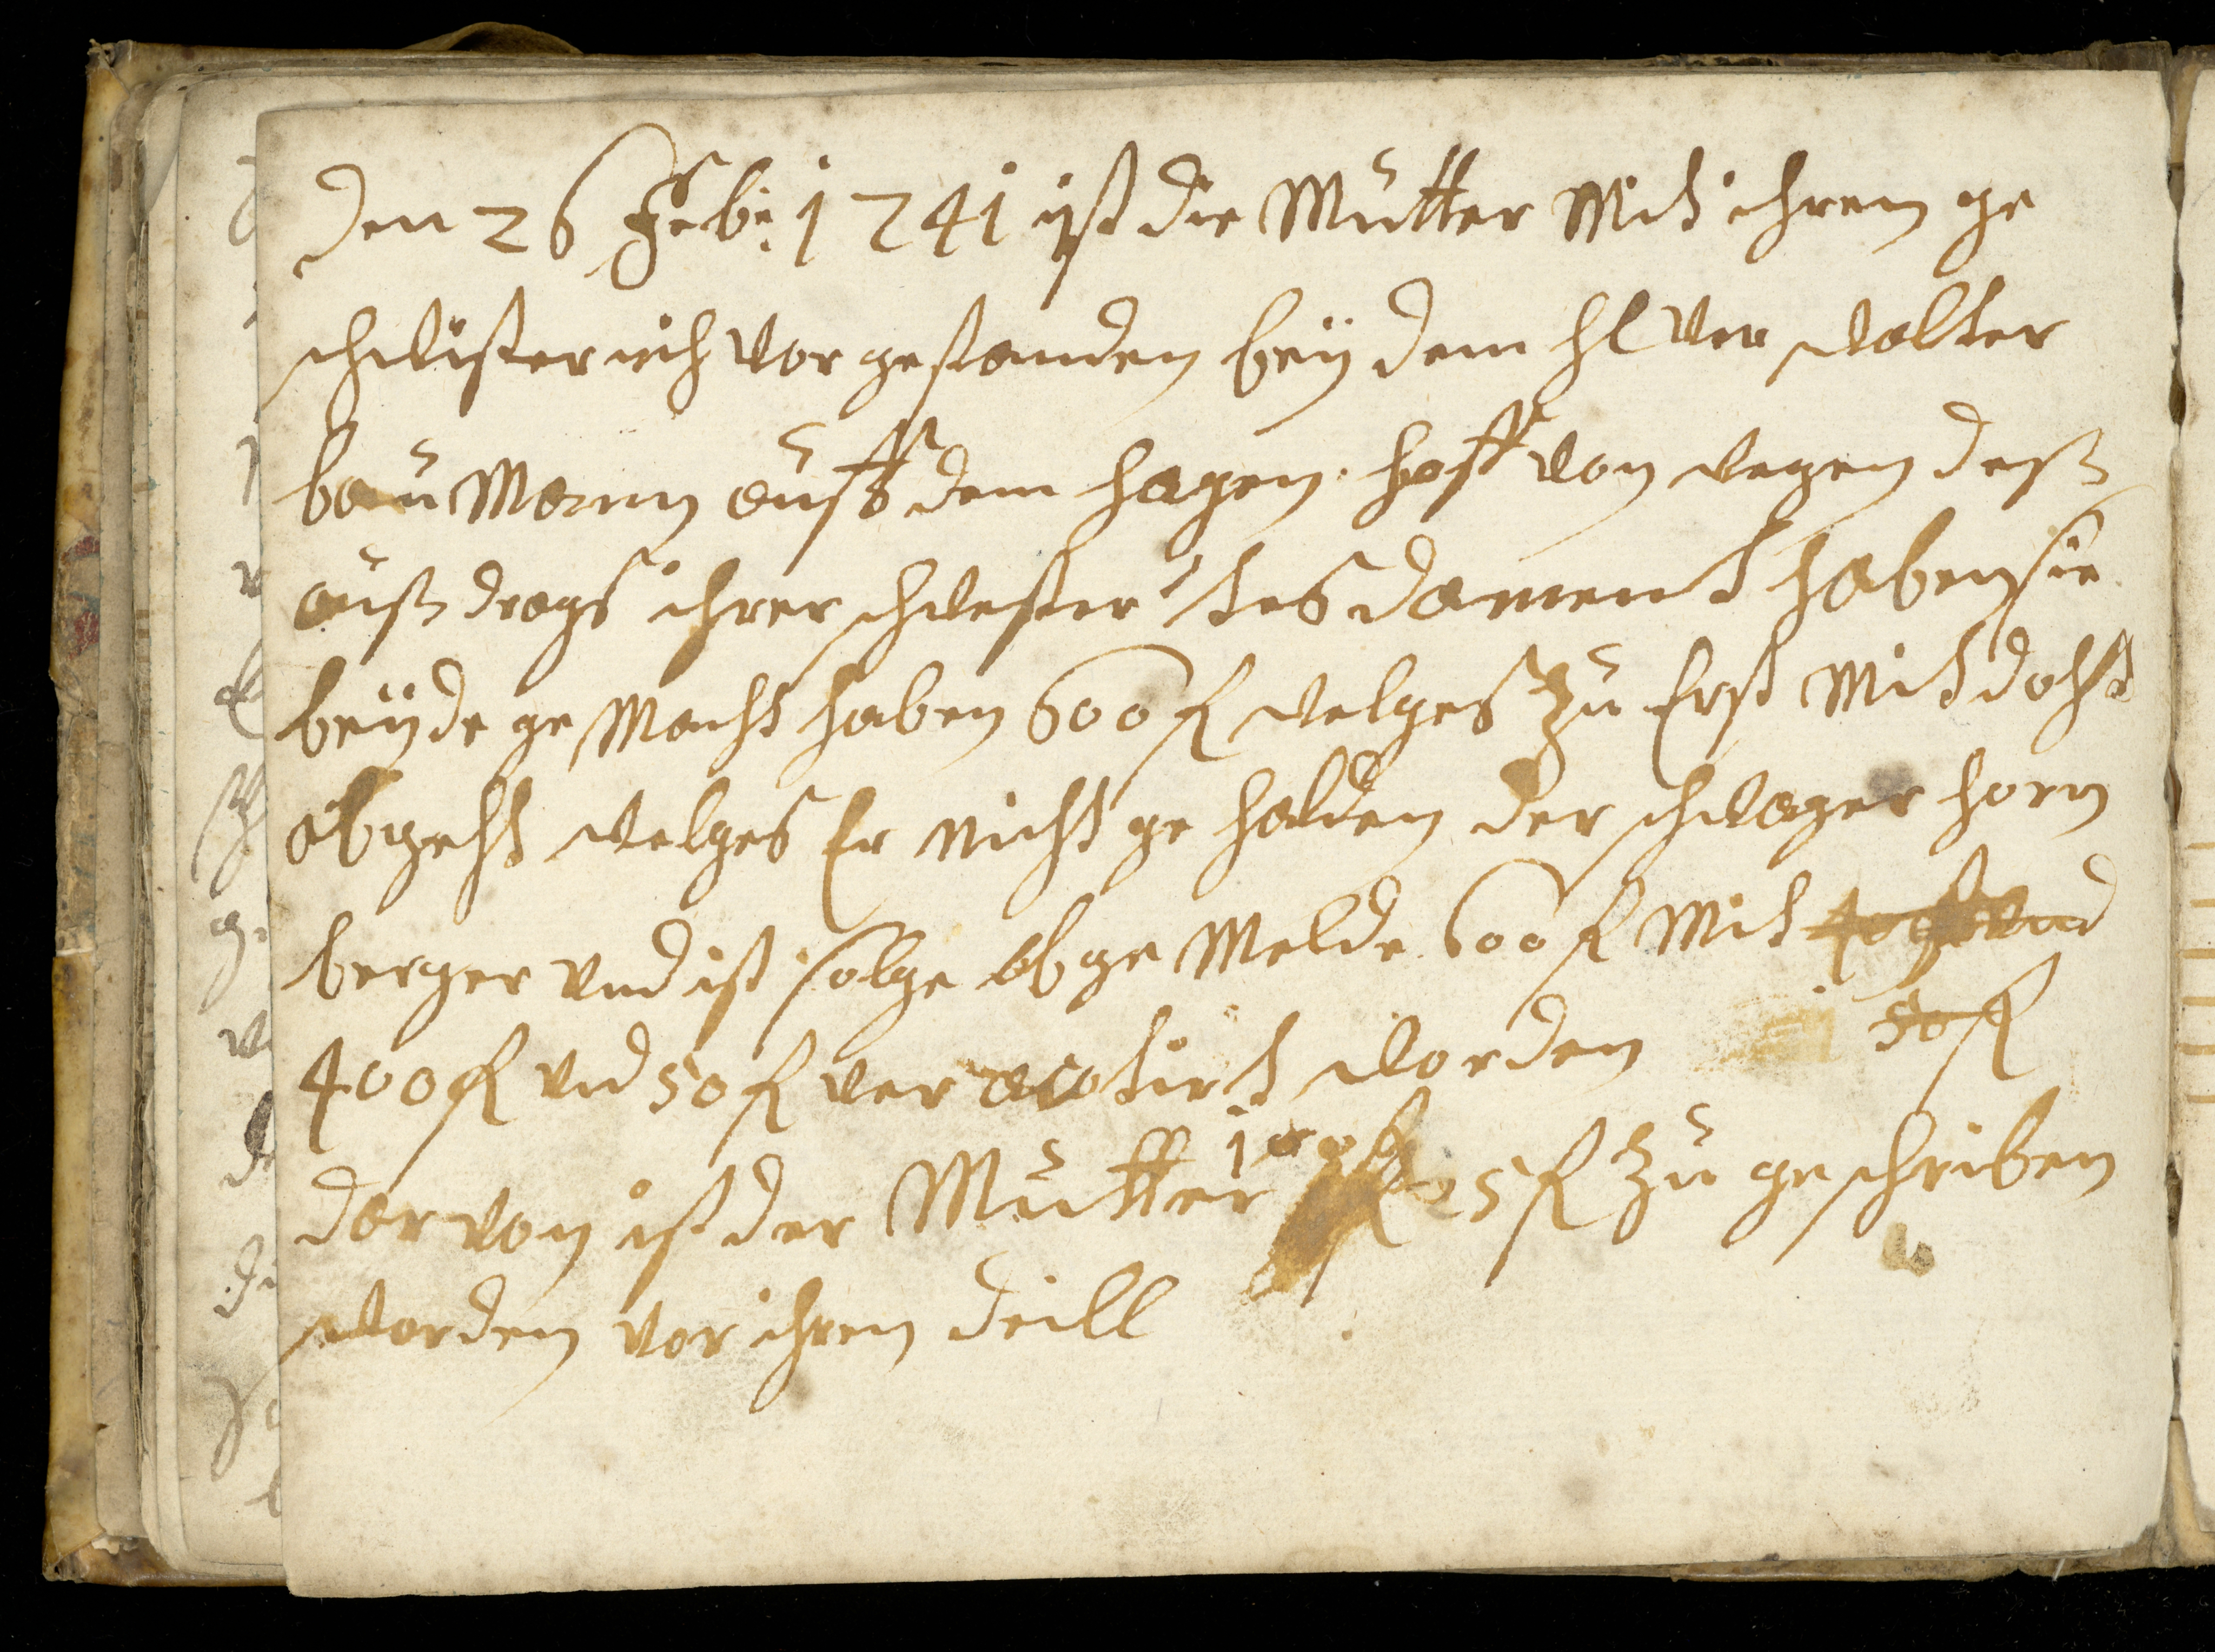 Den 26 Feb: 1741 ist die Mutter Mitt ihren ge
schwister sich vor gestanden beÿ dem hl ver walter
bau Mann auff dem hagen hoff von wegen deß
auß drags ihrer schwester tesdament haben sie
beÿde ge Macht haben 600 fl welges zu Erst Mit dacht
ob geht welges Er nicht ge halden der schwager horn
berger und ist solge ob ge Melde 600 fl Mit 400 fl und
50 fl
400 fl und 50 fl ver acotirt worden
dar von ist der Mutter 100 fl 25 fl zu geschriben
worden vor ihren deill